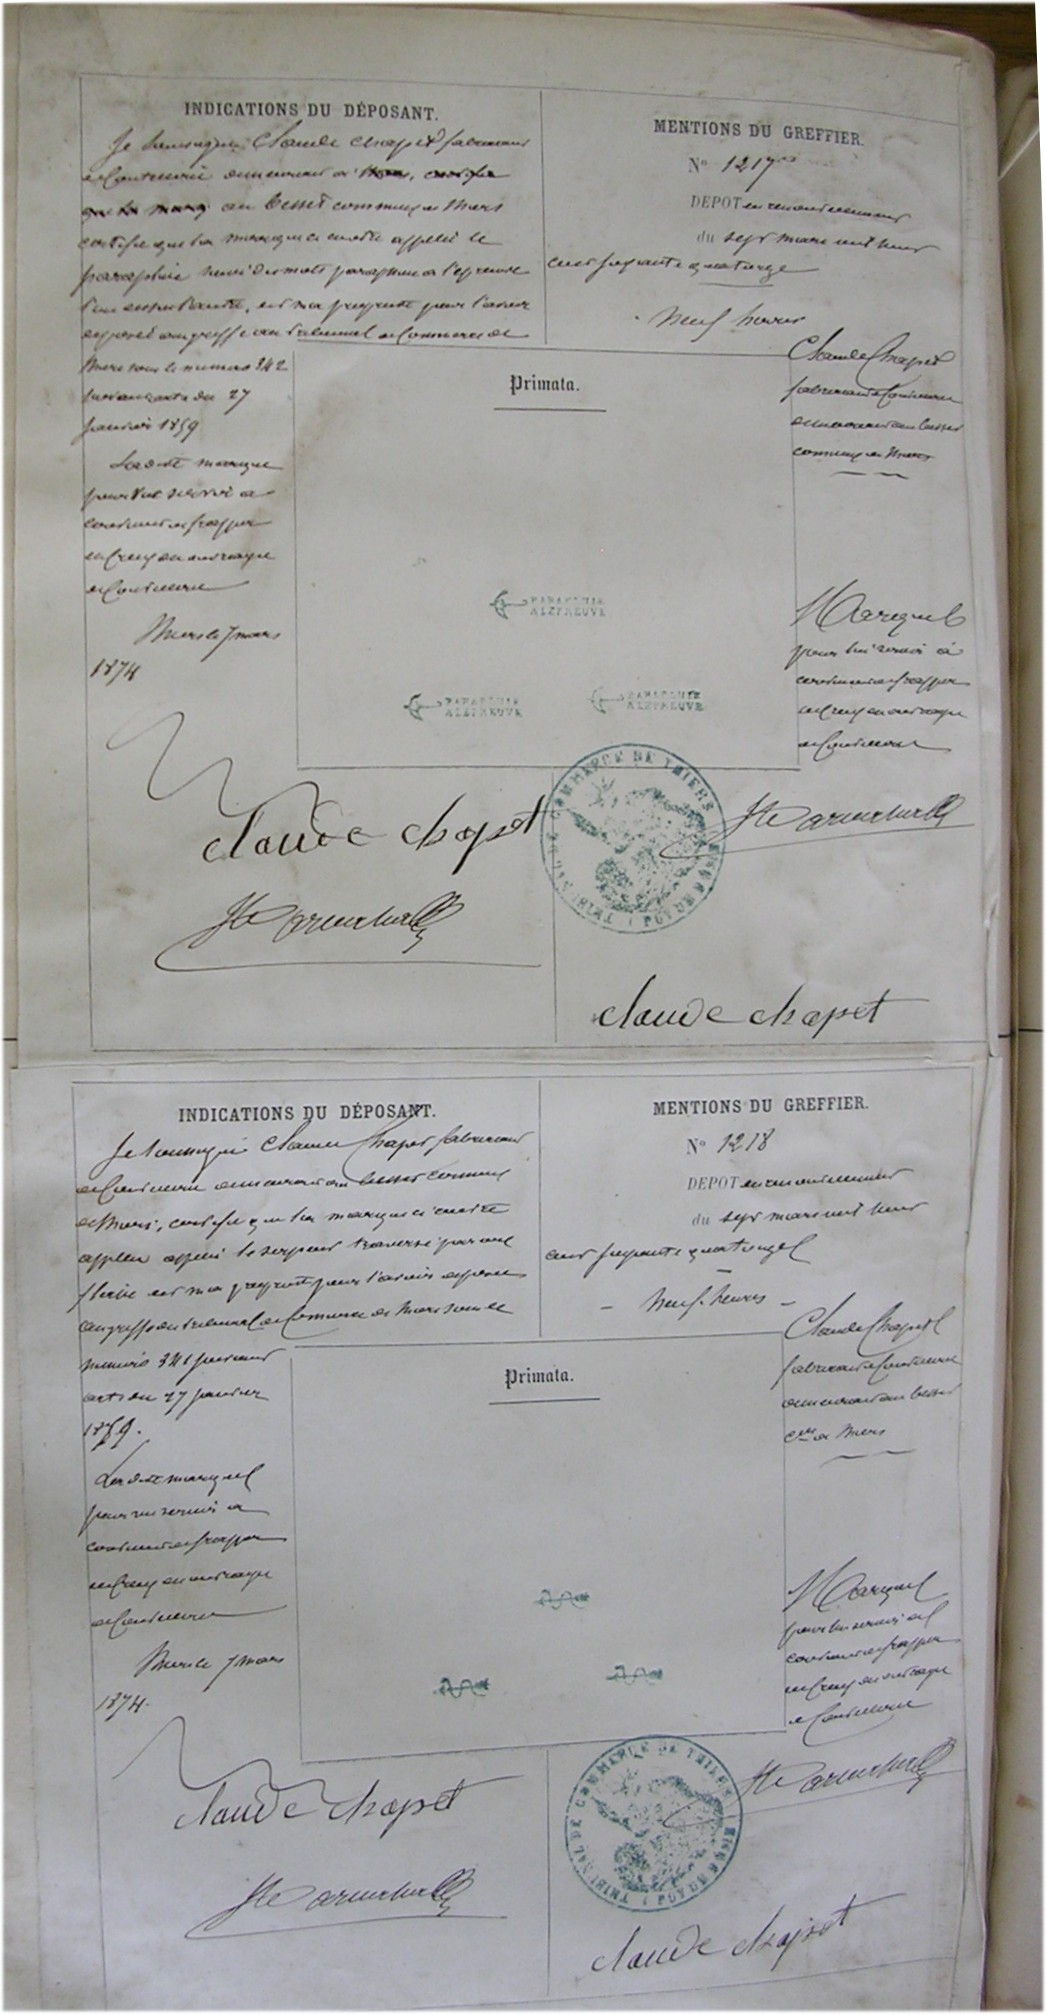 INDICATIONS DU DÉPOSANT.
Je soussigné Claude Chapet fabricant
de Coutellerie demeurant à
au besset commune de thiers
certifie que la marque ci contre appelée le
parapluie suivi des mots parapluie a l'epreuve
est ma propriété pour l'avoir
déposée au greffe du tribunal de Commerce de
thiers sous le numero 342
suivant acte du 27
janvier 1859
Ladite marque
pour lui servir à
continuer de frapper
en creux ses ouvrages
de Coutellerie
Thiers le 7 mars
1874
MENTIONS DU GREFFIER.
No 1217
DEPOT en renouvellement
du sept mars mil huit
cent soixante quatorze
Neuf heures
Claude Chapet
fabricant de Coutellerie
demeurant au besset
commune de thiers
Primata.
PARAPLUIE
A L'EPREUVE
PARAPLUIE
A L'EPREUVE
PARAPLUIE
A L'EPREUVE
Marque
pour lui servir à
continuer de frapper
en creux ses ouvrages
de Coutellerie
TRIBUNAL DE COMMERCE DE THIERS
claude chapet
claude chapet
INDICATIONS DU DÉPOSANT.
Je soussigné Claude Chapet fabricant
de Coutellerie demeurant au besset commune
de thiers, certifie que la marque ci contre
appelée le serpent traversé par une
flèche est ma propriété pour l'avoir déposée
au greffe du tribunal de Commerce de thiers sous le
numéro 341 suivant
acte du 27 janvier
1859.
Ladite marque
pour lui servir à
continuer de frapper
en creux ses ouvrages
de Coutellerie
Thiers le 7 mars
1874.
MENTIONS DU GREFFIER.
No 1218
DEPOT en renouvellement
du sept mars mil huit
cent soixante quatorze
- Neuf heures -
Claude Chapet
fabricant de Coutellerie
demeurant au besset
cne de thiers
Primata.
Marque
pour lui servir à
continuer de frapper
en creux ses ouvrages
de Coutellerie
TRIBUNAL DE COMMERCE DE THIERS
claude chapet
claude chapet